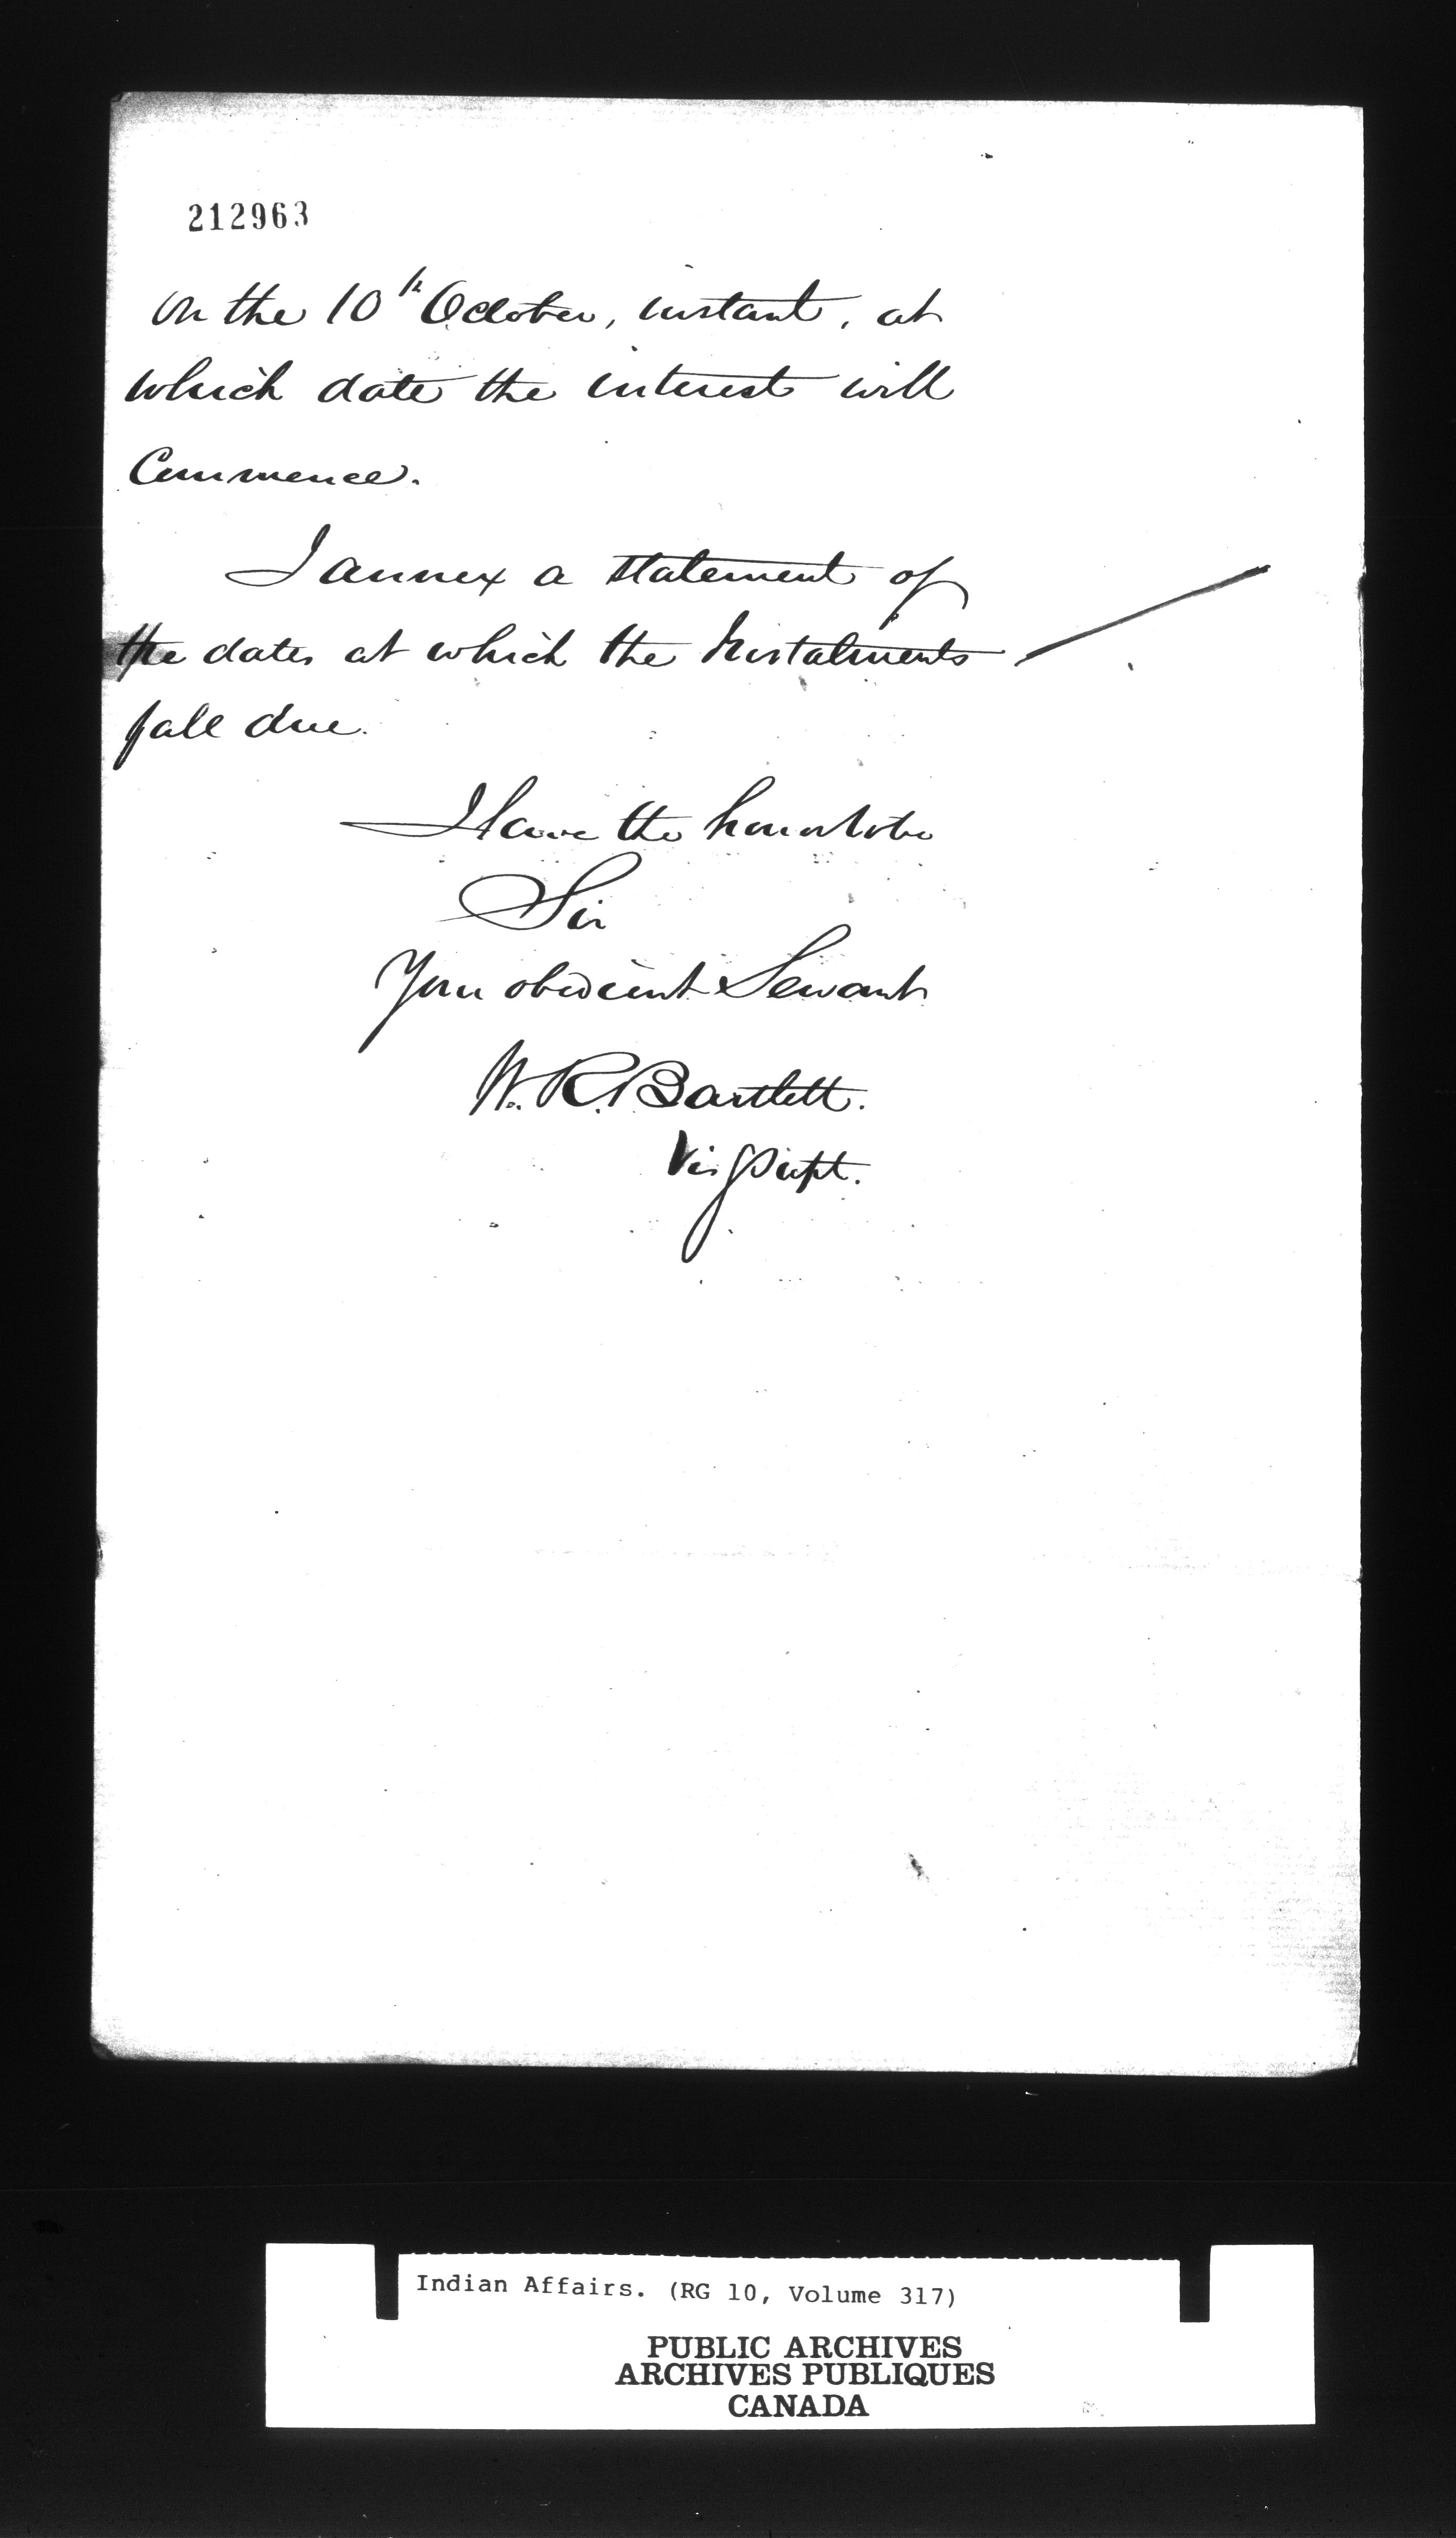 212963
on the 10th October, instant, at
which date the interest will
Commence.
I annex a statement of
the dates at which the Instalments
fall due.
I have the honor to be
Sir
Your obedient Servant
W. R. Bartlett.
Vis. Supt.
Indian Affairs. (RG 10, Volume 317)
PUBLIC ARCHIVES
ARCHIVES PUBLIQUES
CANADA